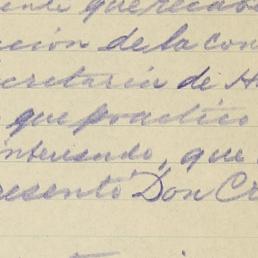 ente que recab
ción de la con
ecretaria de H
que practico
interesado, que
resentó Don Cr